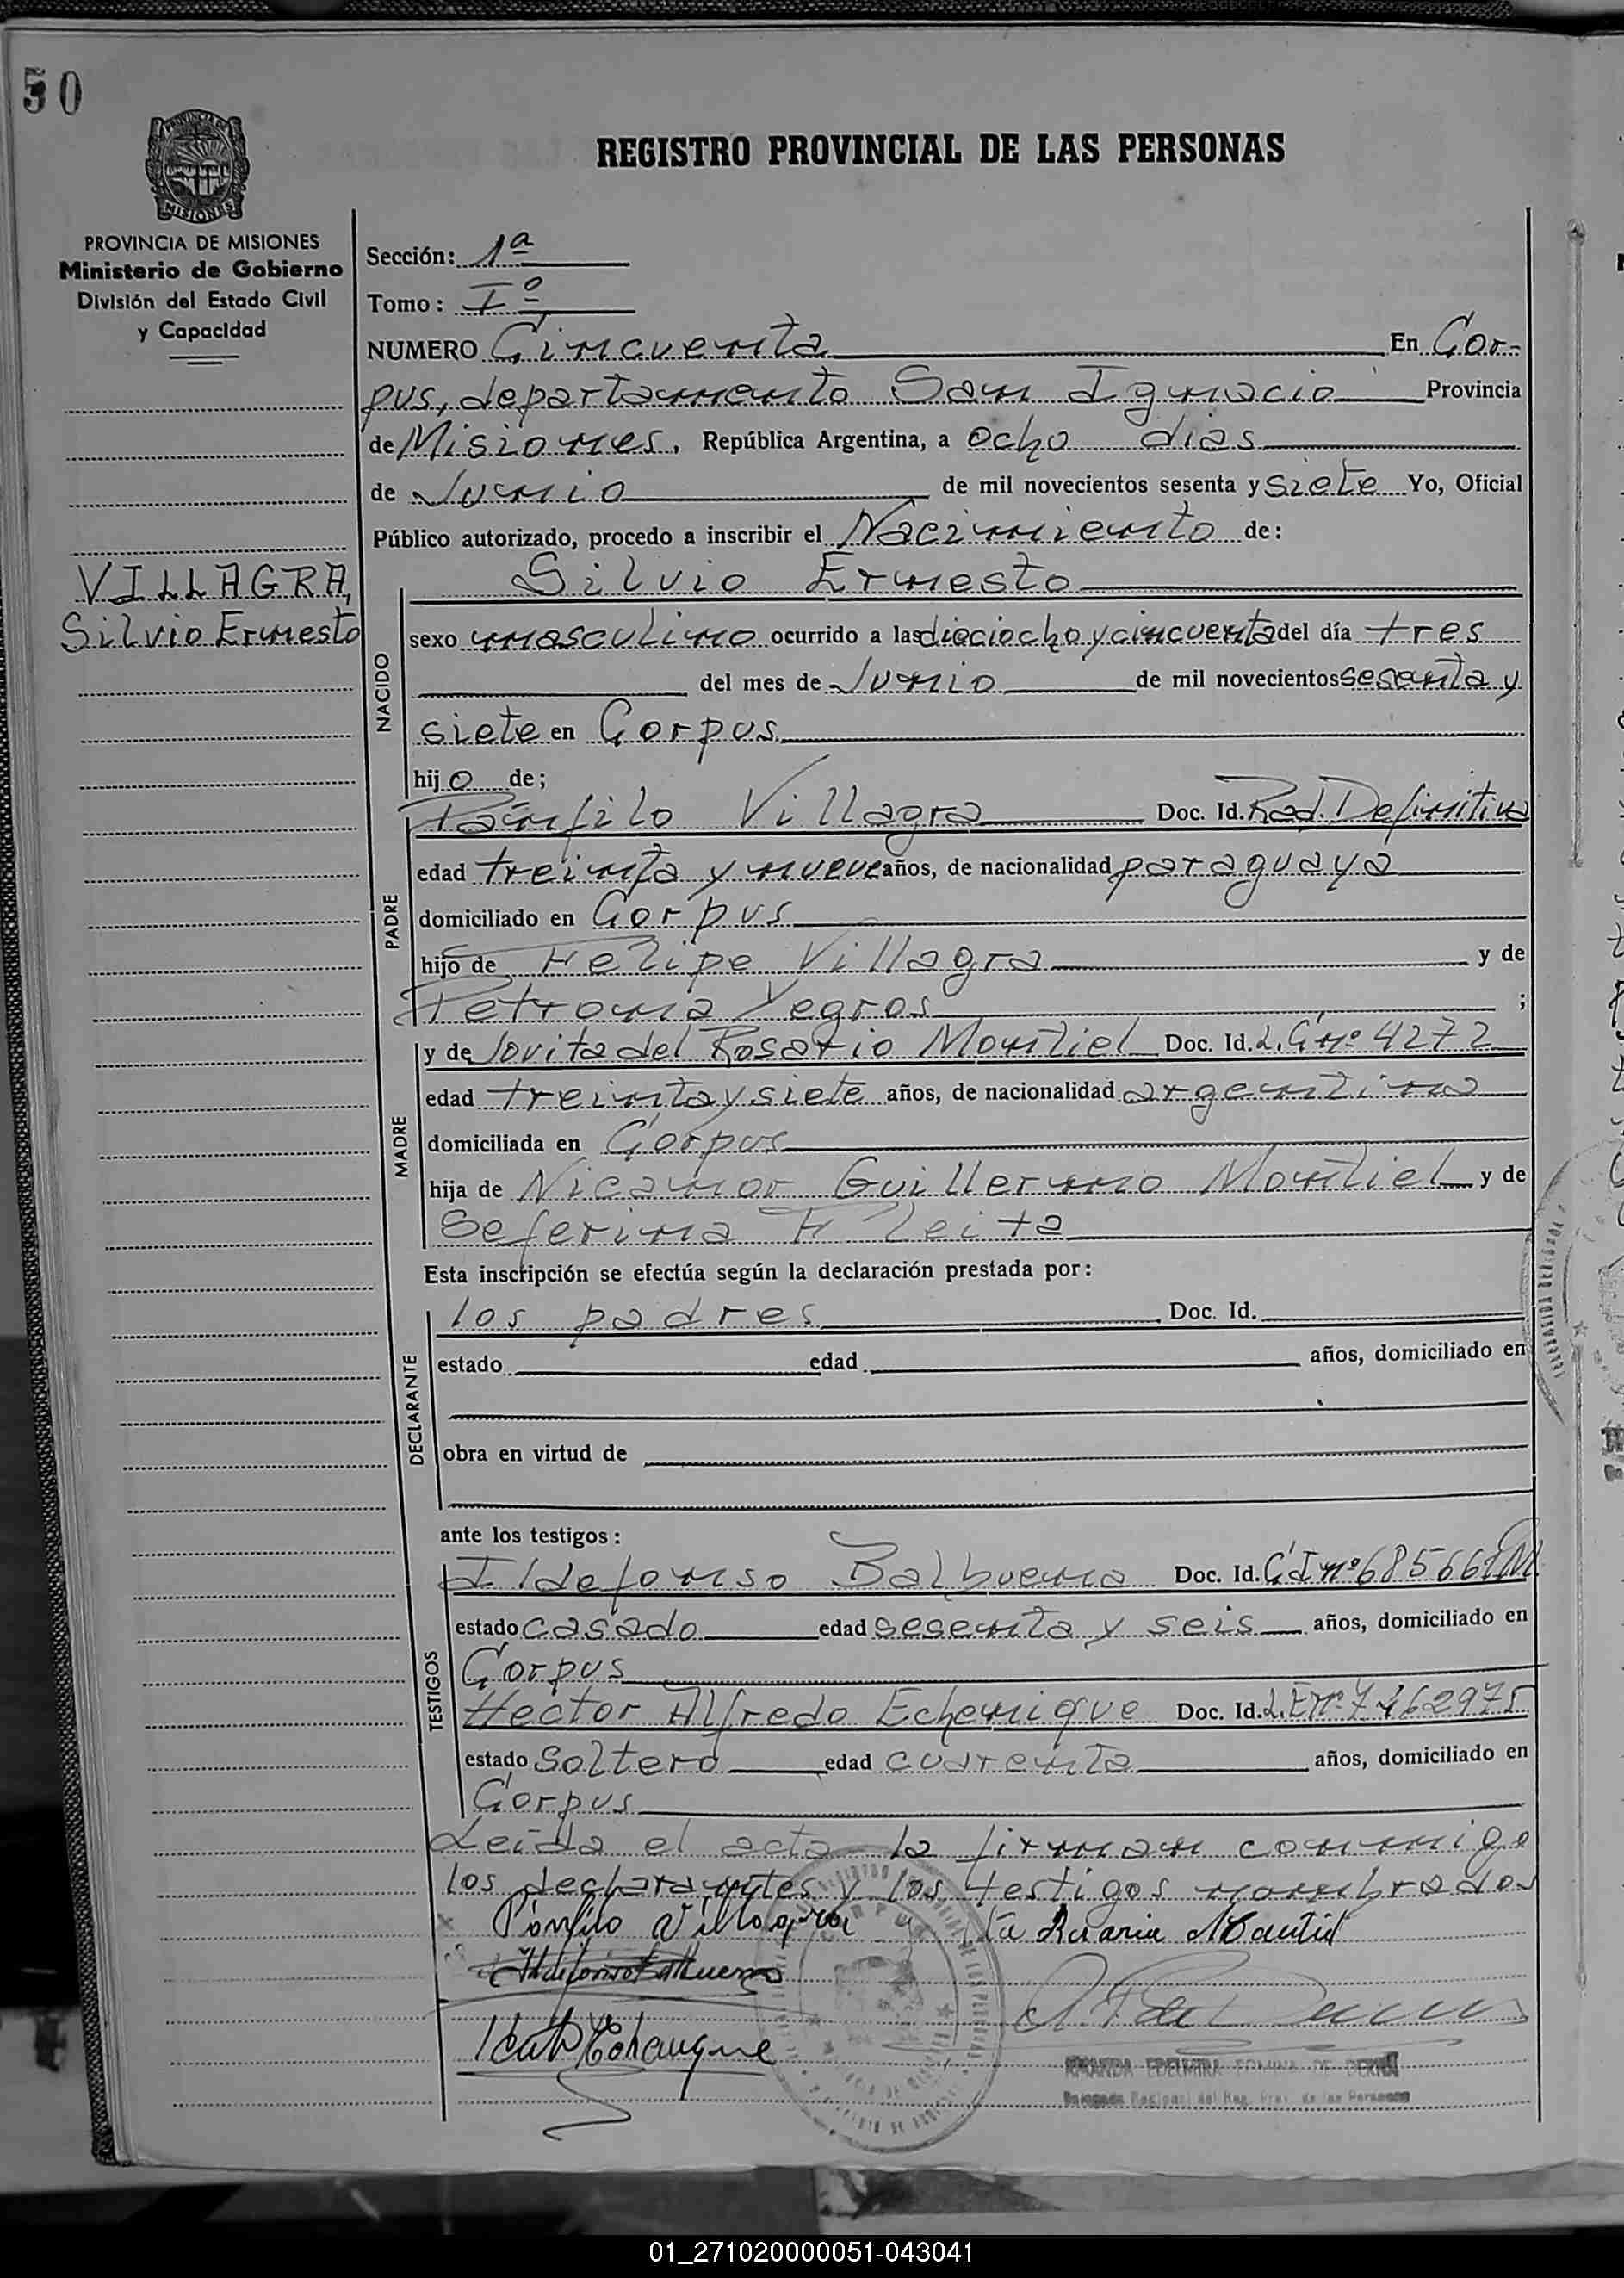 50
REGISTRO PROVINCIAL DE LAS PERSONAS
PROVINCIA DE MISIONES
Ministerio de Gobierno
División del Estado Civil
y Capacidad
VILLAGRA,
Silvio Ernesto
Sección: 1ª
Tomo: Iº
NUMERO Cincuenta En Cor-
pus, departamento San Ignacio Provincia
de Misiones, República Argentina, a ocho dias
de Junio de mil novecientos sesenta y siete Yo, Oficial
Público autorizado, procedo a inscribir el Nacimiento de:
Silvio Ernesto
NACIDO
sexo masculino ocurrido a las dieciocho y cincuenta del día tres
del mes de Junio de mil novecientos sesenta y
siete en Corpus
hijo de;
PADRE
Pánfilo Villagra Doc. Id. Rad. Definitiva
edad treinta y nueve años, de nacionalidad paraguaya
domiciliado en Corpus
hijo de Felipe Villagra y de
Petrona Yegros ;
MADRE
y de Jovita del Rosario Montiel Doc. Id. L.C nº 4272
edad treinta y siete años, de nacionalidad argentina
domiciliada en Corpus
hija de Nicanor Guillermo Montiel y de
Seferina F Leita
Esta inscripción se efectúa según la declaración prestada por:
DECLARANTE
los padres Doc. Id.
estado edad años, domiciliado en
obra en virtud de
ante los testigos:
TESTIGOS
Ildefonso Balbuena Doc. Id. C I nº 68566
estado casado edad sesenta y seis años, domiciliado en
Corpus
Hector Alfredo Echenique Doc. Id. L.E nº 7462975
estado soltero edad cuarenta años, domiciliado en
Corpus
Leida el acta la firman conmigo
los declarantes y los testigos nombrados
Pánfilo Villagra
Ildefonso Balbuena
AMANDA EDELMIRA DE
Delegada Regional del Reg. Prov. de las Personas
01_271020000051-043041